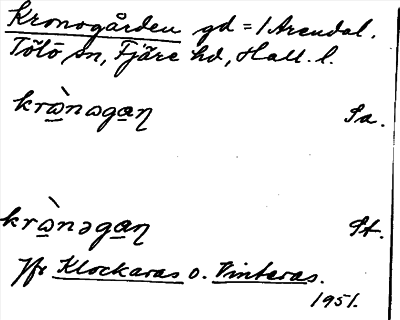 Kronogården gd = 1 Arendal.
Tölö sn, Fjäre hd, Hall. l.
krὼnəgaɳ Sa.
krὼnəgaɳ St.
Jfr Klockaras o. Vinteras.
1951.